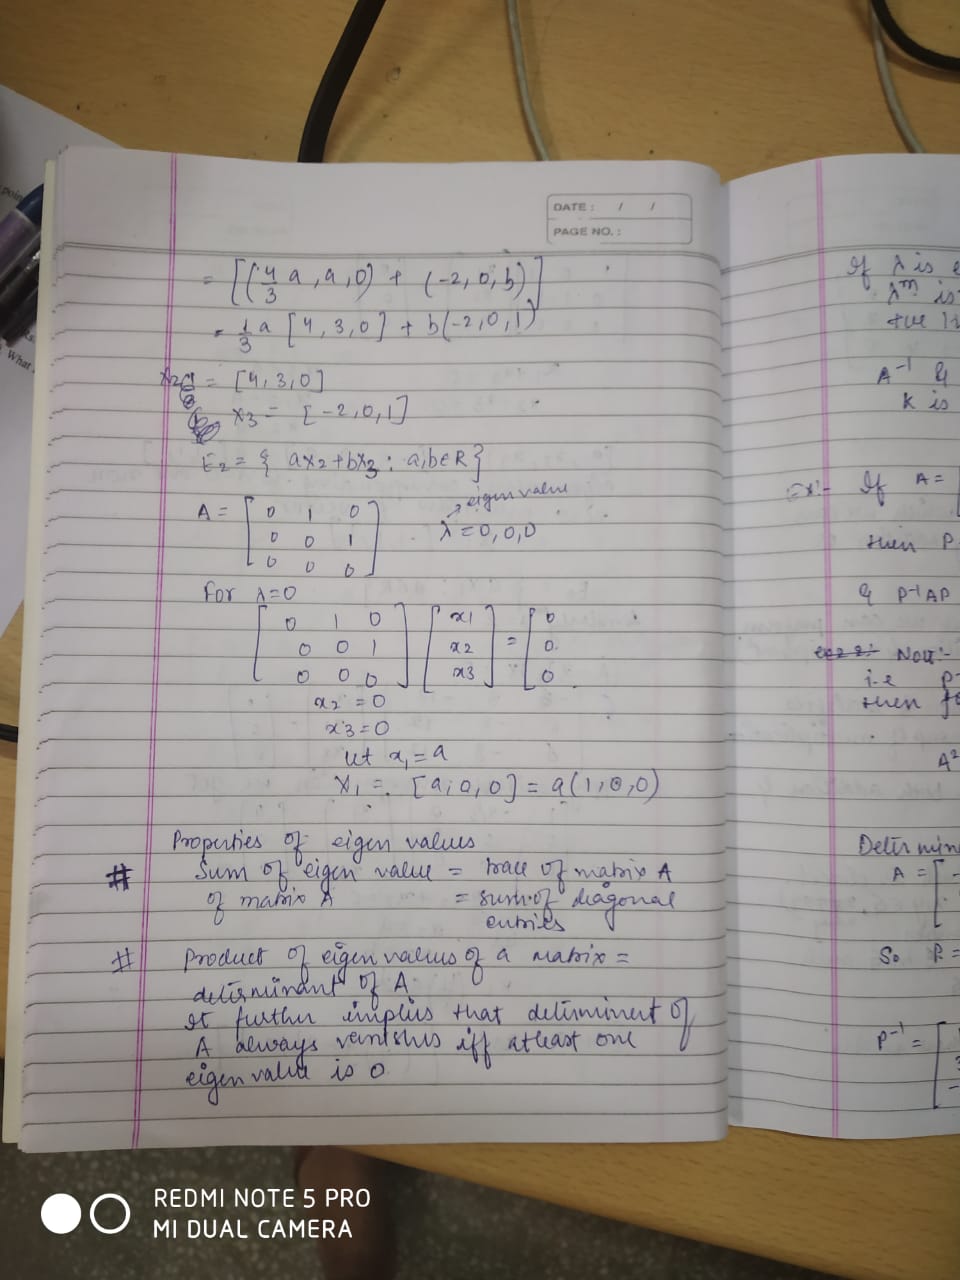 DATE : / /
PAGE NO. :
= [(4/3 a, a, 0) + (-2, 0, b)]
= 1/3 a [4, 3, 0] + b(-2, 0, 1)
x2 = [4, 3, 0]
x3 = [-2, 0, 1]
E2 = { ax2 + bx3 : a, b ∈ R }
eigen value
A = [0 1 0
0 0 1
0 0 0]
λ = 0, 0, 0
For λ=0
[0 1 0
0 0 1
0 0 0] [x1
x2
x3] = [0
0
0]
x2 = 0
x3 = 0
let x1 = a
X1 = [a, 0, 0] = a(1, 0, 0)
Properties of eigen values
# Sum of eigen value = trace of matrix A
of matrix A = sum of diagonal
entries
# Product of eigen values of a matrix =
determinant of A.
It further implies that determinent of
A always vanishes iff atleast one
eigen value is 0
If λ is
λ^m is
+ve In
A^-1 &
K is
Ex:- If A = [
then P
& P^-1AP
Note:-
i.e P
then fo
A^2
Determin
A = [-
So P =
P^-1 = [
What
poin
REDMI NOTE 5 PRO
MI DUAL CAMERA